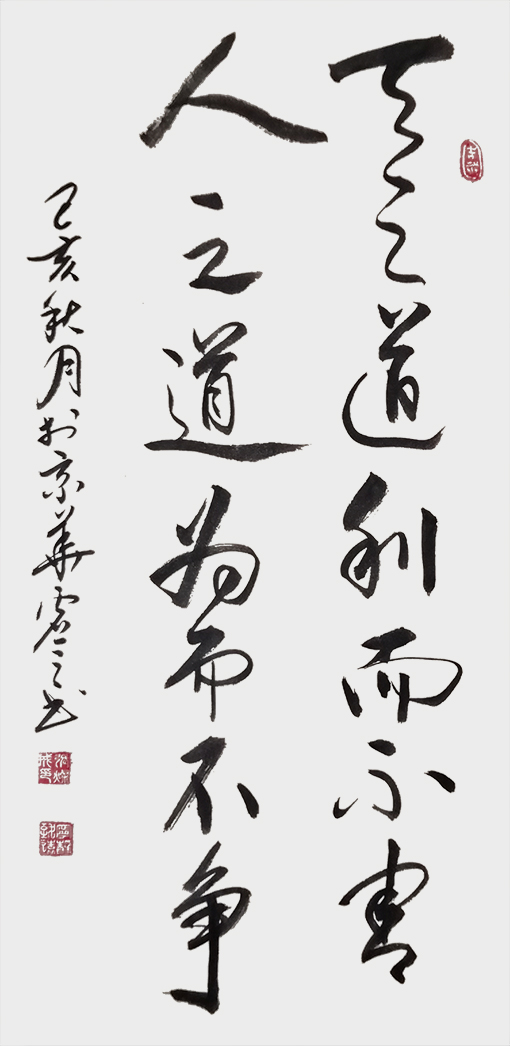 天之道利而不害
人之道为而不争
己亥秋月于京华虚之书